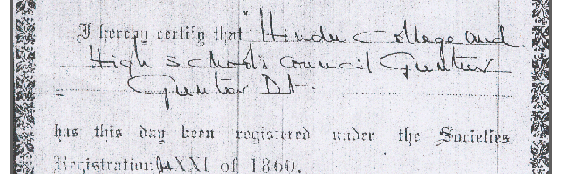 I hereby certify that Hindu College and
High Schools Council Guntur
Guntur Dt.
has this day been registered under the Societies
Registration XXI of 1860.